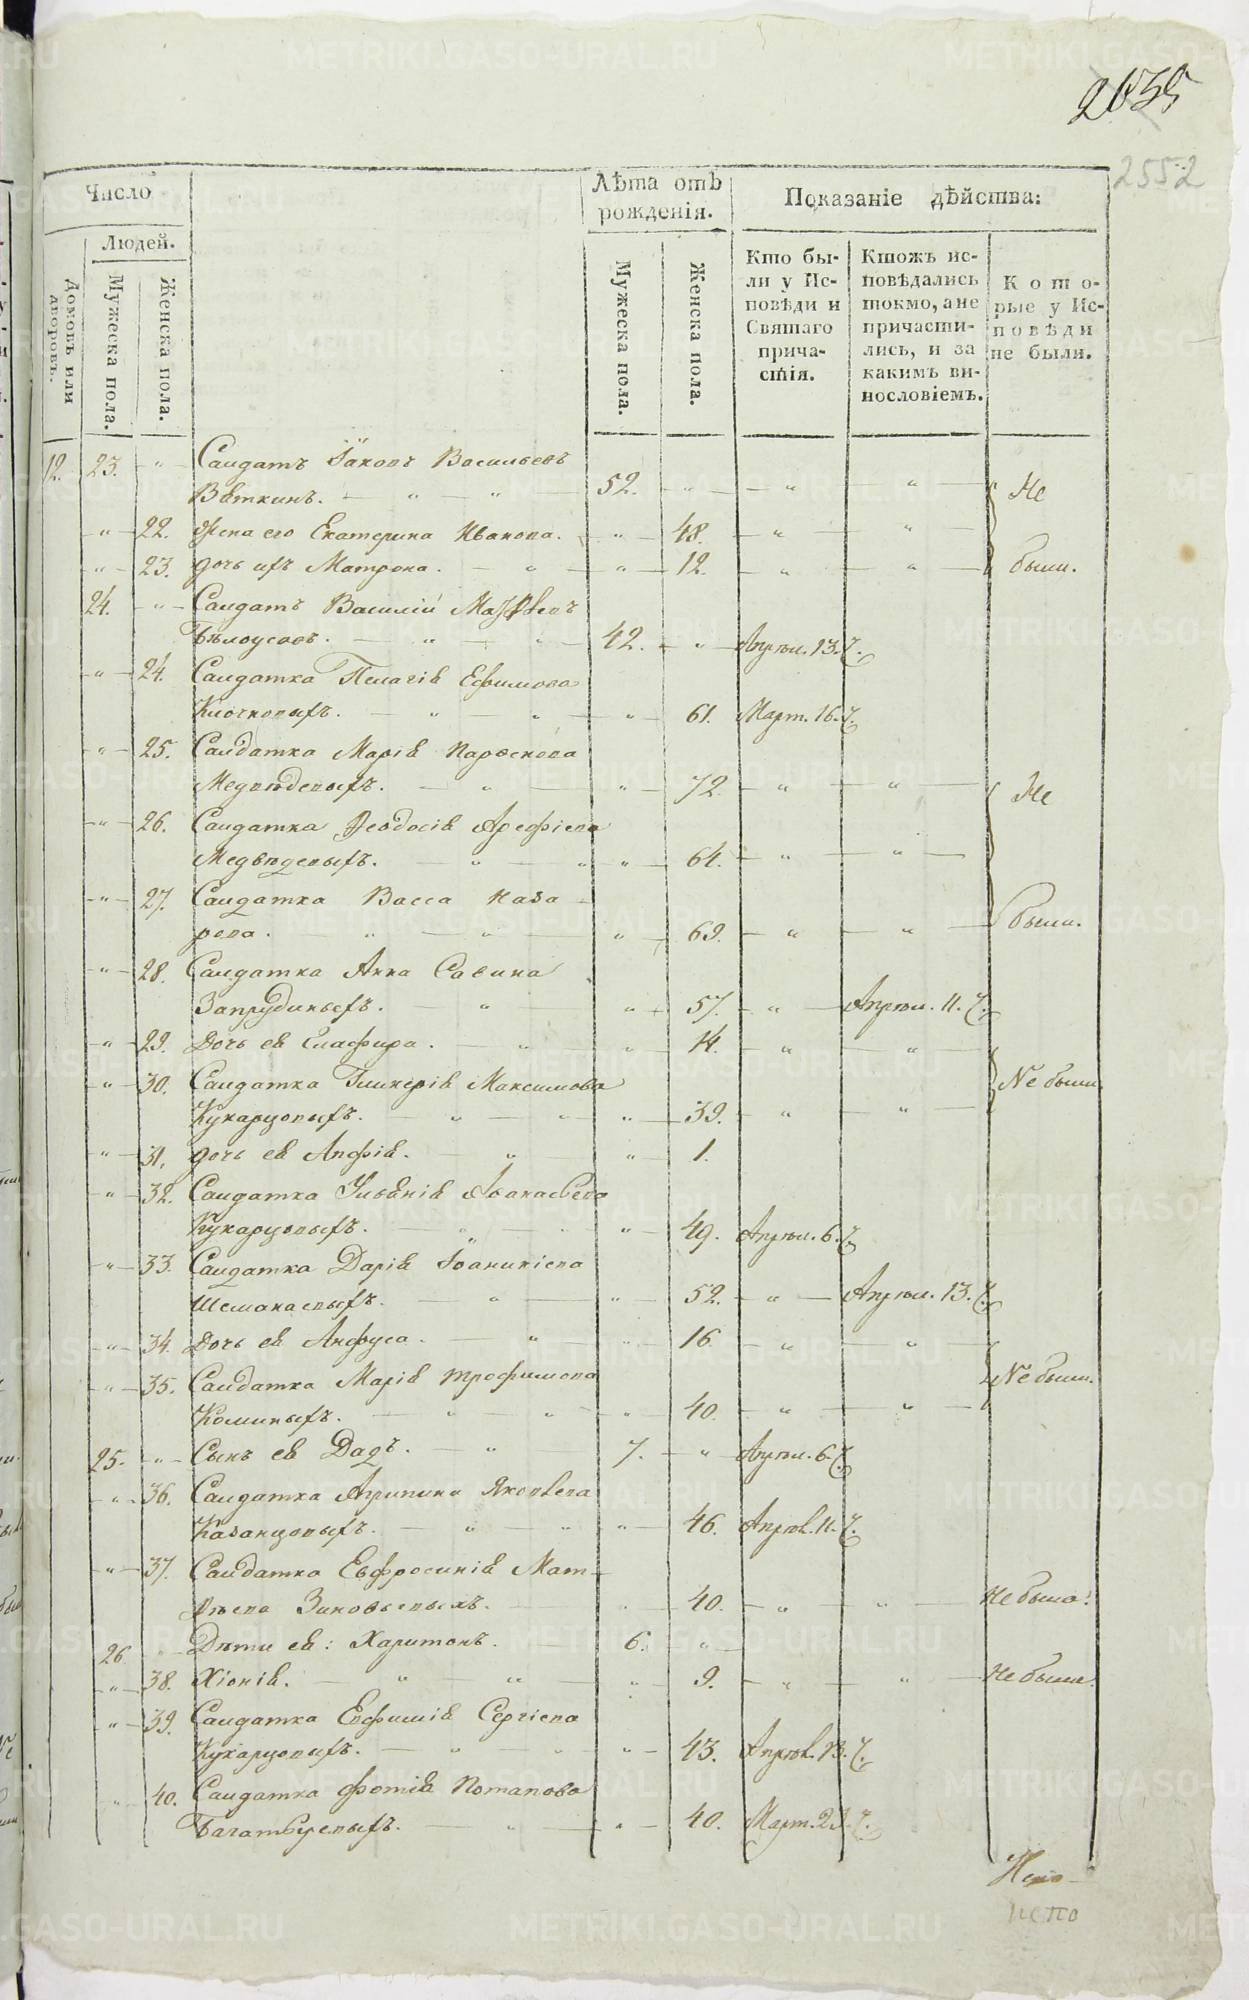 2552
Число
Людей.
Домовъ или дворовъ.
Мужеска пола.
Женска пола.
Лѣта отъ
рожденія.
Мужеска пола.
Женска пола.
Показаніе дѣйства:
Кто бы-
ли у Ис-
повѣди и
Святаго
прича-
стія.
Ктожъ ис-
повѣдались
токмо, а не
причасти-
лись, и за
какимъ ви-
нословіемъ.
Кото-
рые у Ис-
повѣди
не были.
12. 23. " Салдатъ Іаковъ Васильевъ
Вяткинъ. " " 52. " " " Не
" 22. Жена его Екатерина Иванова. " 48. " "
" 23. дочь ихъ Матрона. " " 12. " " были.
24. " Салдатъ Василій Матѳѣевъ
Бѣлоусовъ. " " 42. " Апрѣл. 13. ч.
" 24. Салдатка Пелагія Ефимова
Клочковыхъ. " " " 61. Март. 16. ч.
" 25. Салдатка Марія
Медвѣдевыхъ. " " 72. " " Не
" 26. Салдатка Ѳеодосія Арефіева
Медвѣдевыхъ. " " " 64. " "
" 27. Салдатка Васса Наза-
рова. " " " 69. " " были.
" 28. Салдатка Анна Савина
Запрудиныхъ. " " 57. " Апрѣл. 11. ч.
" 29. Дочь ея Глафира. " " 14. " "
" 30. Салдатка Гликерія Максимова Не были
Кухарцовыхъ. " " " 39. " "
" 31. дочь ея Апфія. " " 1.
" 32. Салдатка Ульянія Аѳанасьева
Кухарцовыхъ. " " " 49. Апрѣл. 6. ч.
" 33. Салдатка Дарія Іоаникіева
Шемонаевыхъ. " " 52. " Апрѣл. 13. ч.
" 34. Дочь ея Анфуса. " " 16. " "
" 35. Салдатка Марія Трофимова Не были.
Коминыхъ. " " " 40. " "
25. " Сынъ ея Дадъ. " 7. " Апрѣл. 6. ч.
" 36. Салдатка Агрипина Яковлева
Казанцовыхъ. " " " 46. Апрѣл. 11. ч.
" 37. Салдатка Евфросинія Мат-
вѣева Зиновьевыхъ. " 40. " " Не была.
26 " Дѣти ея: Харитонъ. 6. "
" 38. Хіонія. " " " 9. " " Не были.
" 39. Салдатка Евфимія Сергіева
Кухарцовыхъ. " " " 43. Апрѣл. 13. ч.
" 40. Салдатка Фотія Потапова
Багатыревыхъ. " " 40. Март. 23. ч.
Испо-
испо
METRIKI.GASO-URAL.RU